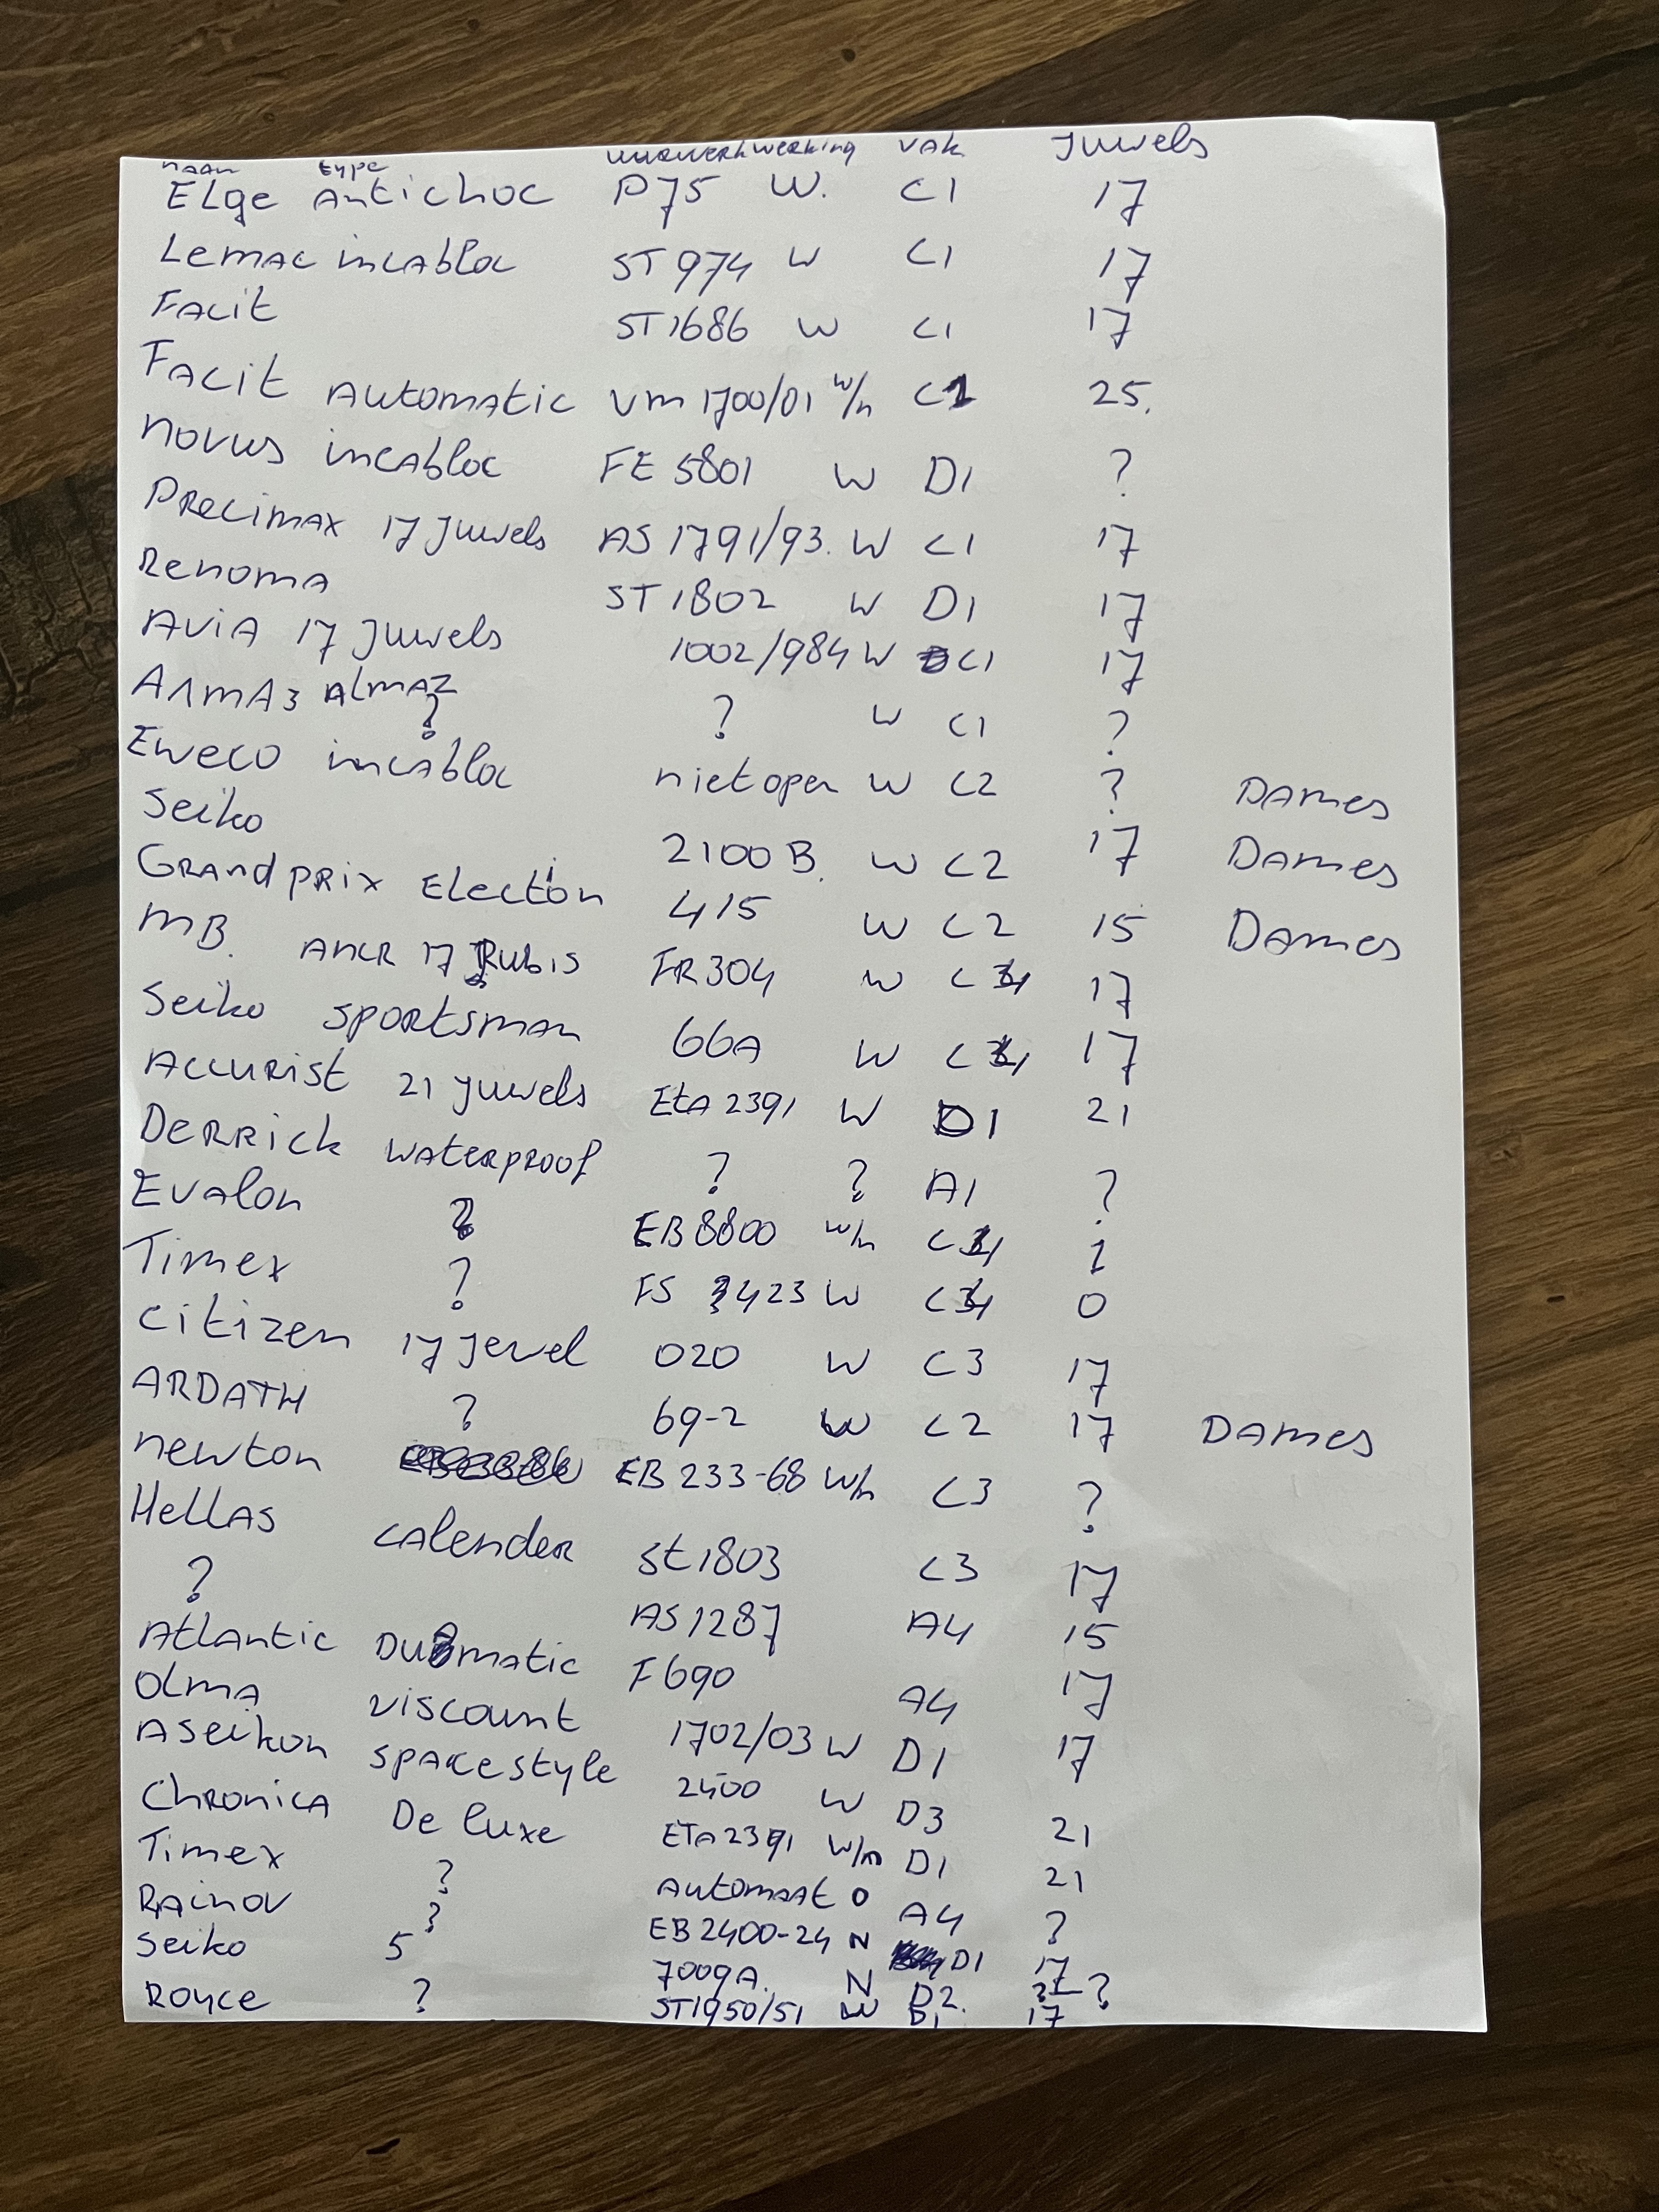 naam type uurwerk werking vak Juwels
ELge Antichoc P75 W. C1 17
Lemac incabloc ST 974 W C1 17
Facit ST1686 W C1 17
Facit Automatic VM 1700/01 W/n C1 25.
Novus incabloc FE 5801 W D1 ?
Precimax 17 Juwels AS 1791/93. W C1 17
Renoma ST 1802 W D1 17
AViA 17 Juwels 1002/984 W C1 17
АлмАз Almaz ? ? W C1 ?
Eweco incabloc niet open W C2 ? DAmes
Seiko 2100 B. W C2 17 DAmes
Grand prix Election 415 W C2 15 DAmes
MB. Ancr 17 Rubis FR 304 W C4 17
Seiko sportsman 66A W C4 17
Accurist 21 juwels EtA 2391 W D1 21
Derrick waterproof ? ? A1 ?
Evalon ? EB 8800 W/n C4 1
Timex ? FS 2423 W C4 0
Citizen 17 Jewel 020 W C3 17
ARDATH ? 69-2 W C2 17 DAmes
Newton EB 233-68 W/n C3 ?
Hellas calender St 1803 C3 17
? AS 1287 A4 15
Atlantic Duomatic F 690 A4 17
Olma viscount 1702/03 W D1 17
Aseikon spacestyle 2400 W D3 21
Chronica De luxe ETA 2391 W/n D1 21
Timex ? Automaat O A4 ?
Rainov ? EB 2400-24 N D1 17
Seiko 5 7009A. N D2. ?
Royce ? ST1950/51 W D1 17